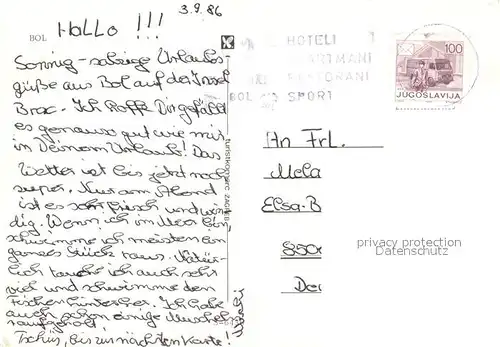 3.9.86
BOL Hallo !!!
Sonnig-salzige Urlaubs-
grüße aus Bol auf der Insel
Brac. Ich hoffe Dir gefällt
es genauso gut wie mir
in Deinem Urlaub! Das
Wetter ist bis jetzt noch
super. Nur am Abend
ist es sehr frisch und win-
dig. Wenn ich im Meer bin,
schwimme ich meistens ein
ganzes Stück raus. Natür-
lich tauche ich auch sehr
viel und schwimme den
Fischen hinterher. Ich habe
auch schon einige Muscheln
raufgeholt!
Tschüs, bis zur nächsten Karte!
turistkomerc ZAGREB
HOTELI
ARTMANI
RESTORANI
BOL SPORT
100
JUGOSLAVIJA
An Frl.
Mela
Elsa-B
850
Der
privacy protection
by AnsichtskartenVersand.com